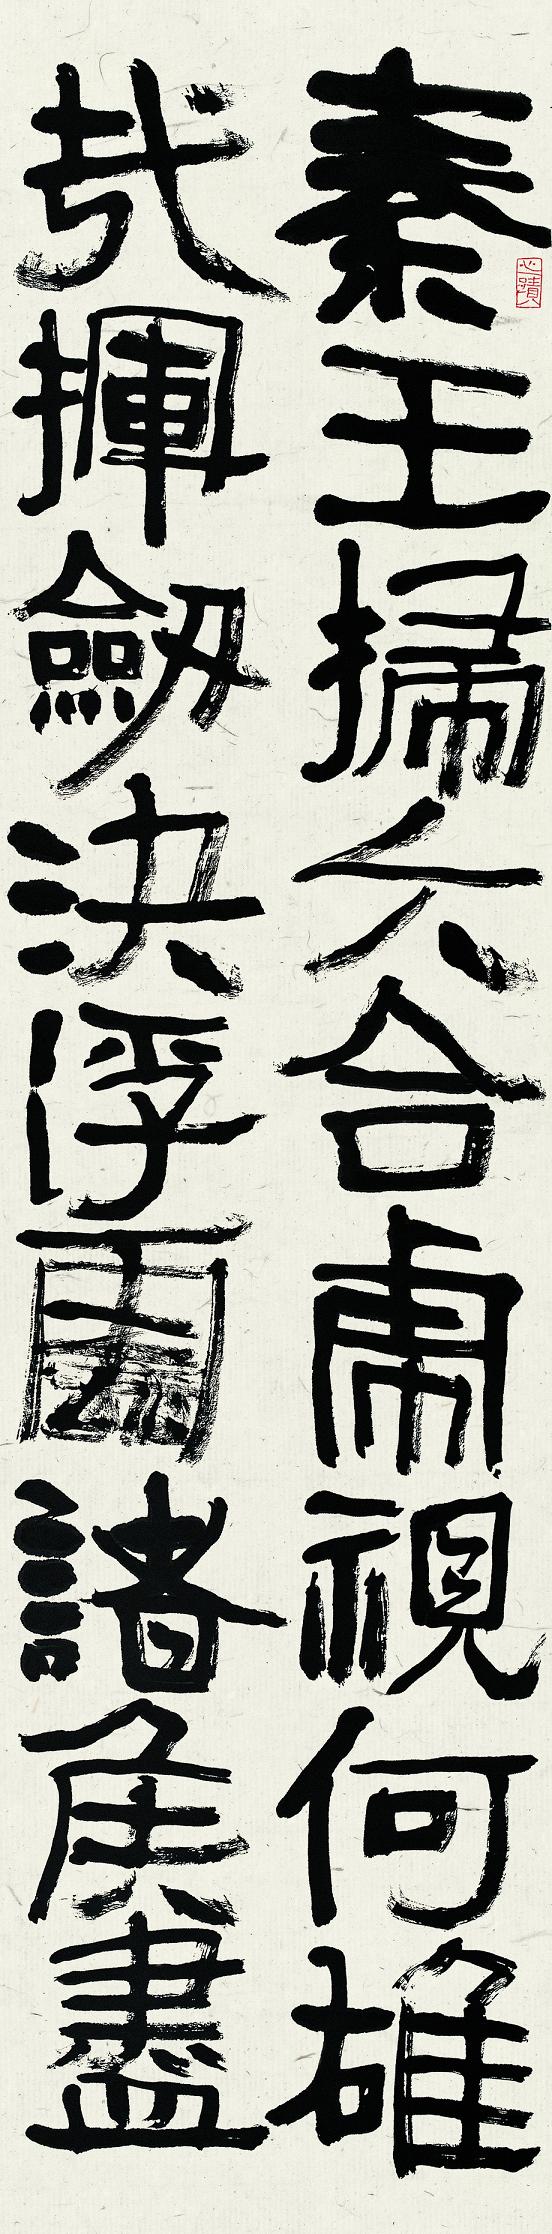 秦王掃六合虎視何雄
哉揮劒決浮雲諸侯盡
心蹟